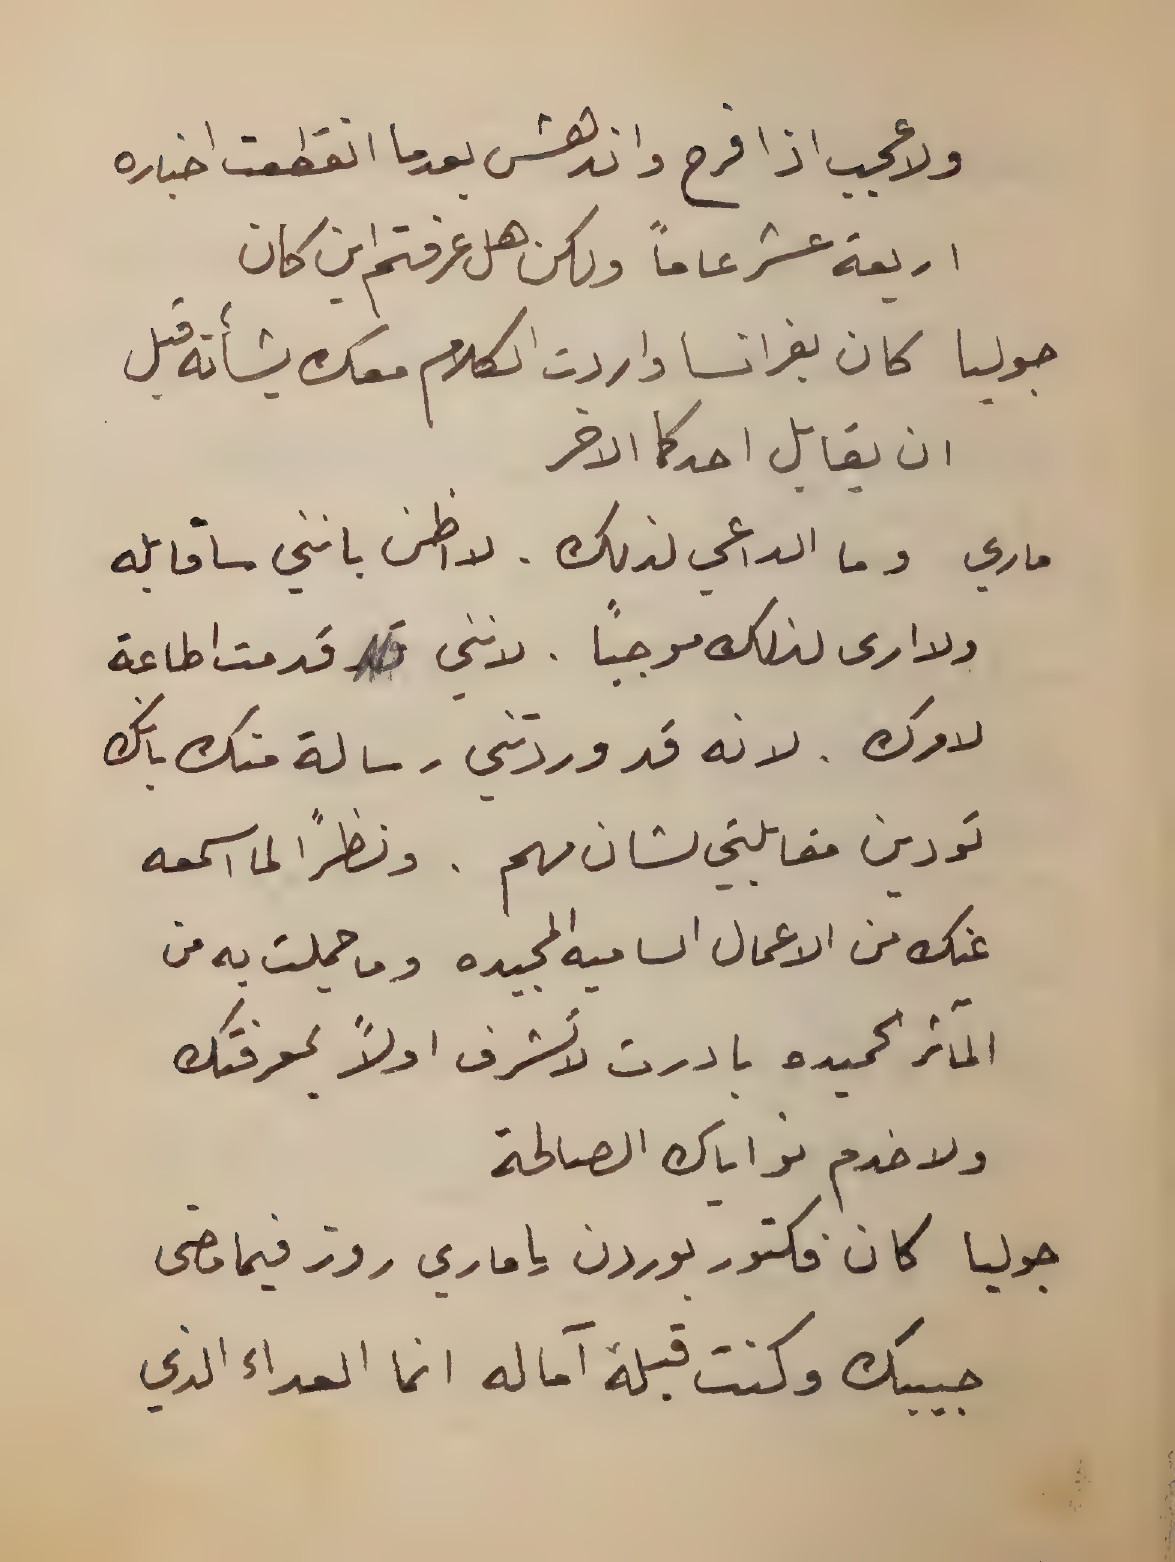 ولا عجب اذا فرح واندهش بعدما انقطعت اخباره
اربعة عشر عاماً ولكن هل عرفتم اين كان
جوليا كان بفرانسا واردت الكلام معك بشأنه قبل
ان يقابل احدكما الاخر
ماري وما الداعي لذلك . لا اظن بانني ساقابله
ولا ارى لذلك موجباً . لانني قدمت اطاعة
لامرك . لانه قد وردتني رسالة منك بانك
تودين مقابلتي لشان مهم . ونظراً لما اسمعه
عنك من الاعمال الساميه المجيده وما جملت به من
المآثر الحميده بادرت لأتشرف اولاً بمعرفتك
ولاخدم نواياك الصالحة
جوليا كان فكتور بوردن يا ماري روز فيما مضى
حبيبك وكنت قبلة آماله انما العداء الذي